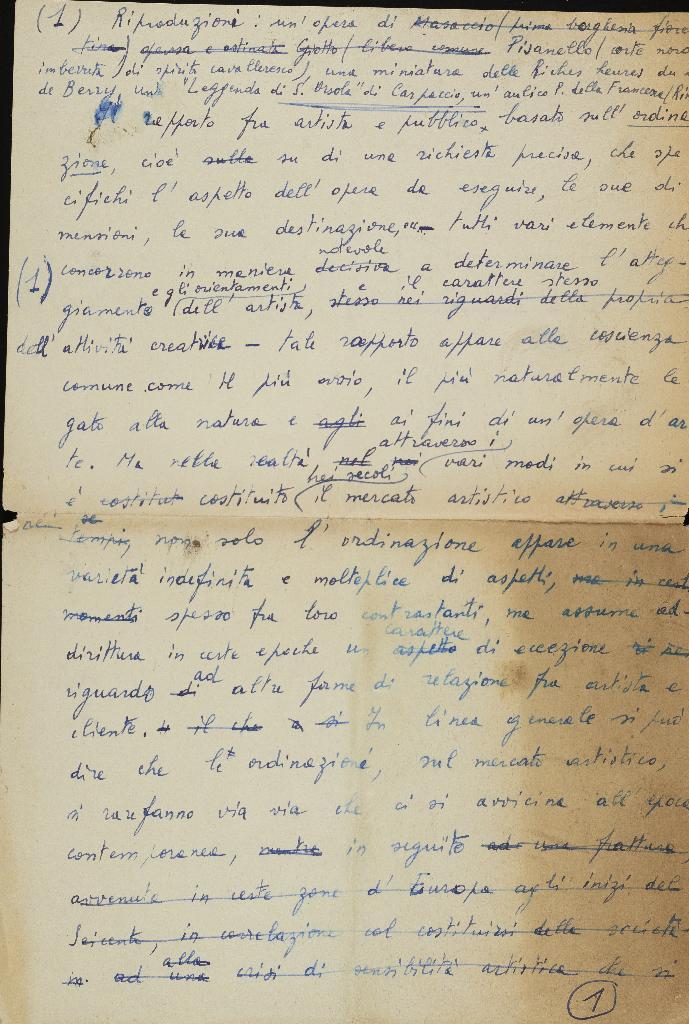 (1) Riproduzioni: un'opera di Masaccio (prima borghesia fioren
tina) Giotto (libero comune Pisanello (corte nord
imbevuta di spirito cavalleresco), una miniatura delle Riches heures du
de Berry, una "Leggenda di S. Orsola" di Carpaccio, un'aulico P. della Francesca (Ri
Il rapporto fra artista e pubblico, basato sull'ordina
zione, cioè sulla su di una richiesta precisa, che spe
cifichi l'aspetto dell'opera da eseguire, le sue di
mensioni, la sua destinazione, ecc — tutti vari elementi ch
notevole
(1) concorrono in maniera decisiva a determinare l'atteg-
e gli orientamenti e il carattere stesso
giamento (dell'artista, stesso nei riguardi della propria
dell'attività creatrice — tale rapporto appare alla coscienza
comune come il più ovvio, il più naturalmente le
gato alla natura e agli ai fini di un'opera d'ar
te. Ma nella realtà nel nei attraverso i vari modi in cui si
nei secoli
è costituit costituito (il mercato artistico attraverso i
se
tempi, non solo l'ordinazione appare in una
varietà indefinita e molteplice di aspetti, ma in certi
momenti spesso fra loro contrastanti, ma assume ad-
carattere
dirittura in certe epoche un aspetto di eccezione
ad
riguardo di altre forme di relazione fra artista e
cliente. il che si In linea generale si può
dire che le ordinazioni, sul mercato artistico,
si rarefanno via via che ci si avvicina all'epoca
contemporanea, mentre in seguito ad una frattura,
avvenuta in certe zone d'Europa agli inizi del
Seicento, in correlazione col costituirsi della società
alla
in ad una crisi di sensibilità artistica che si
1